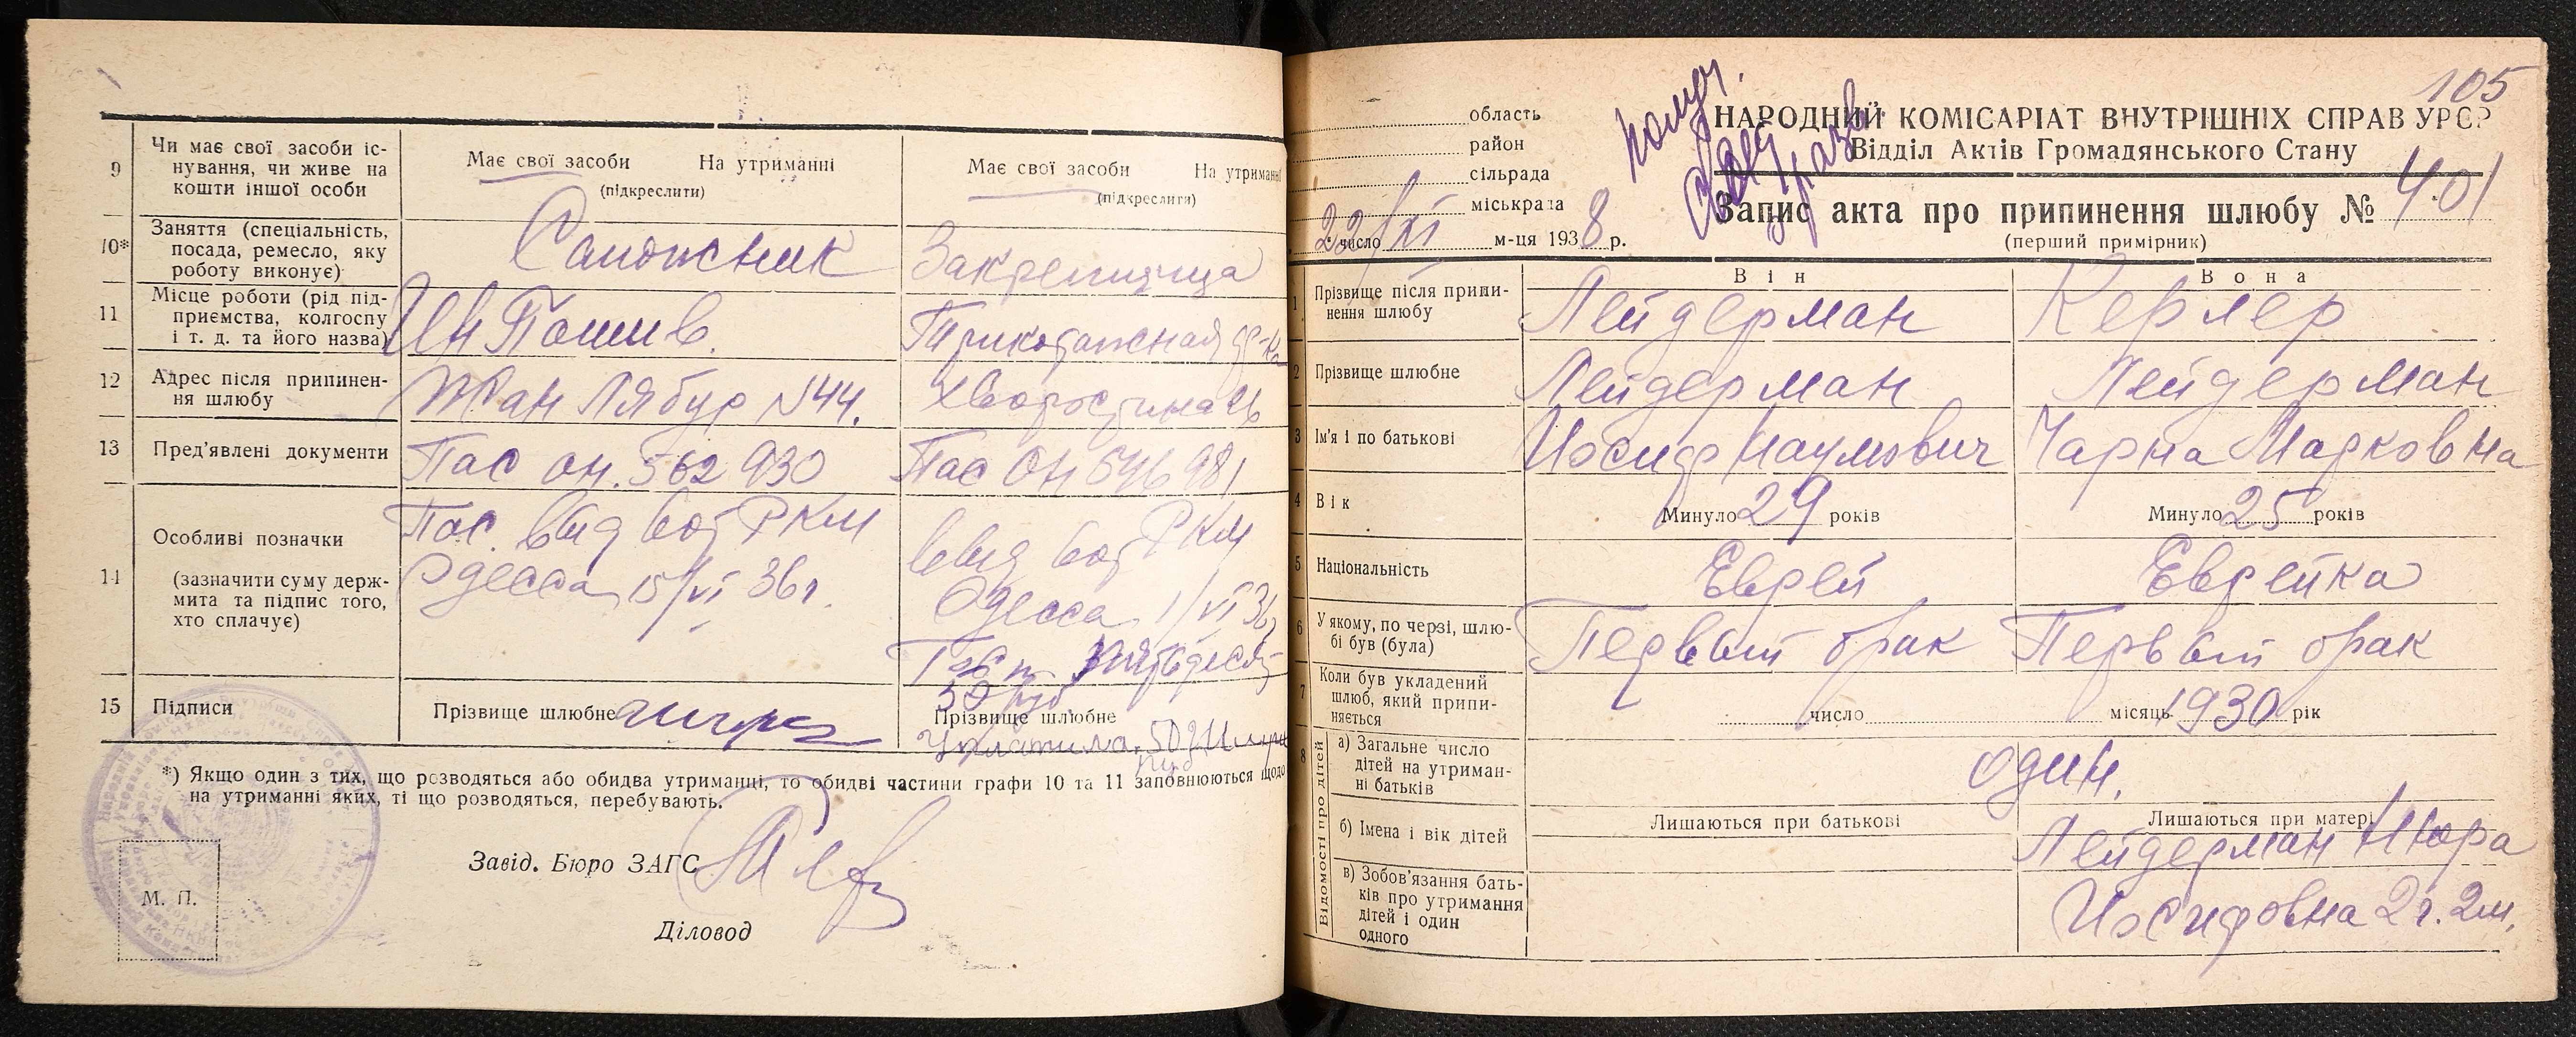 9
Чи має свої засоби іс-
нування, чи живе на
кошти іншої особи
Має свої засоби На утриманні
(підкреслити)
Має свої засоби На утриманні
(підкреслити)
10*
Заняття (спеціальність,
посада, ремесло, яку
роботу виконує)
Сапожник
Закрепщица
11
Місце роботи (рід під-
приємства, колгоспу
і т. д. та його назва)
Ин Пошив.
Трикотажная ф-ка
12
Адрес після припинен-
ня шлюбу
Жан Лябур N44.
Хворостина
13
Пред'явлені документи
Пас ОН. 562930
Пас ОН 546981
14
Особливі позначки
(зазначити суму держ-
мита та підпис того,
хто сплачує)
Пас. выд 6от РКМ
Одесса 15/VI 36 г.
выд 6от РКМ
Одесса 1/VI 36
пятьдесят
50 руб.
15
Підписи
Прізвище шлюбне
Прізвище шлюбне
Уплатила 50
руб
*) Якщо один з тих, що розводяться або обидва утриманці, то обидві частини графи 10 та 11 заповнюються щодо
на утриманні яких, ті що розводяться, перебувають.
Завід. Бюро ЗАГС
Діловод
М. П.
105
область
район
сільрада
міськрада
22/XI число м-ця 1938 р.
НАРОДНИЙ КОМІСАРІАТ ВНУТРІШНІХ СПРАВ УРСР
Відділ Актів Громадянського Стану
Запис акта про припинення шлюбу № 401
(перший примірник)
Він
Вона
1
Прізвище після припи-
нення шлюбу
Лейдерман
Керлер
2
Прізвище шлюбне
Лейдерман
Лейдерман
3
Ім'я і по батькові
Иосиф Наумович
Чарна Марковна
4
Вік
Минуло 29 років
Минуло 25 років
5
Національність
Еврей
Еврейка
6
У якому, по черзі, шлю-
бі був (була)
Первый брак
Первый брак
7
Коли був укладений
шлюб, який припи-
няється
число місяць 1930 рік
8
Відомості про дітей
а) Загальне число
дітей на утриман-
ні батьків
один.
б) Імена і вік дітей
Лишаються при батькові
Лишаються при матері
Лейдерман Нюра
в) Зобов'язання бать-
ків про утримання
дітей і один
одного
Иосифовна 2 г. 2 м.